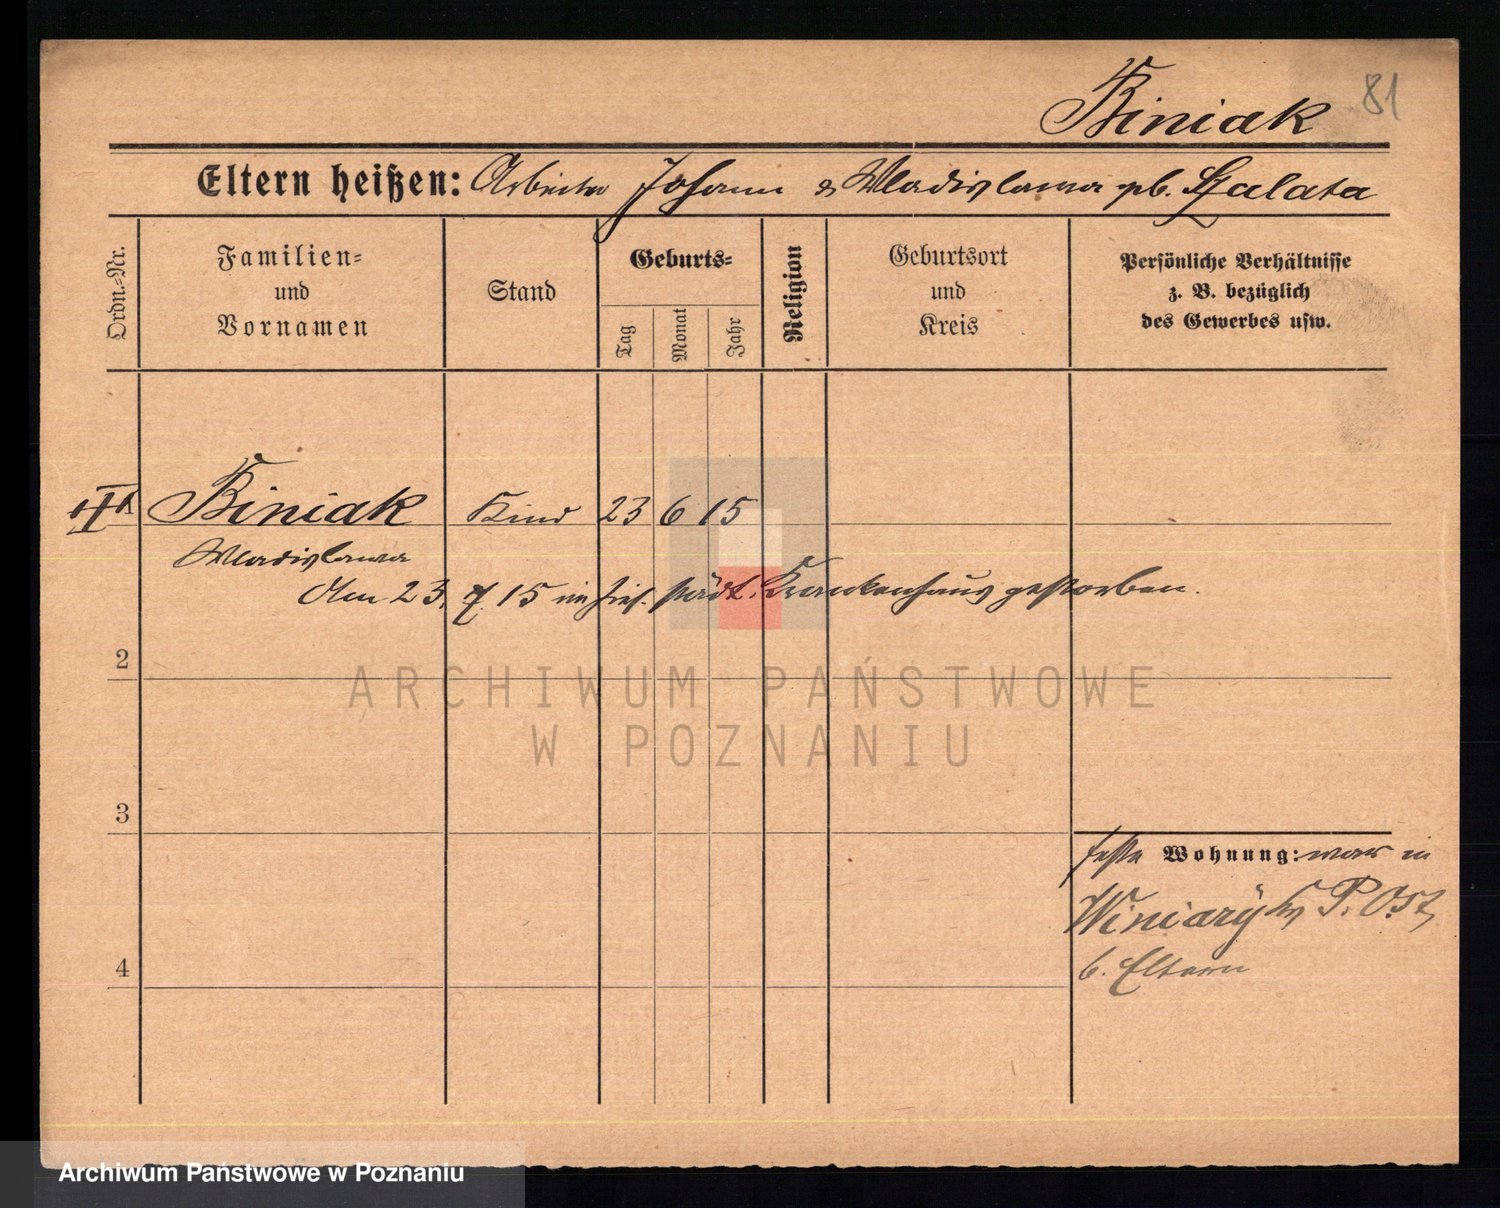 Biniak 81
Eltern heißen: Arbeiter Johann & Wladislawa gb. Szalata
Ordn.-Nr.
Familien-
und
Vornamen
Stand
Geburts-
Tag
Monat
Jahr
Religion
Geburtsort
und
Kreis
Persönliche Verhältnisse
z. B. bezüglich
des Gewerbes usw.
Biniak Kind 23 6 15
Wladislawa
Am 23. 7. 15 im hies. städt. Krankenhaus gestorben.
2
3
4
feste Wohnung: war in
Winiary P. Ost,
b. Eltern
ARCHIWUM PAŃSTWOWE
W POZNANIU
Archiwum Państwowe w Poznaniu